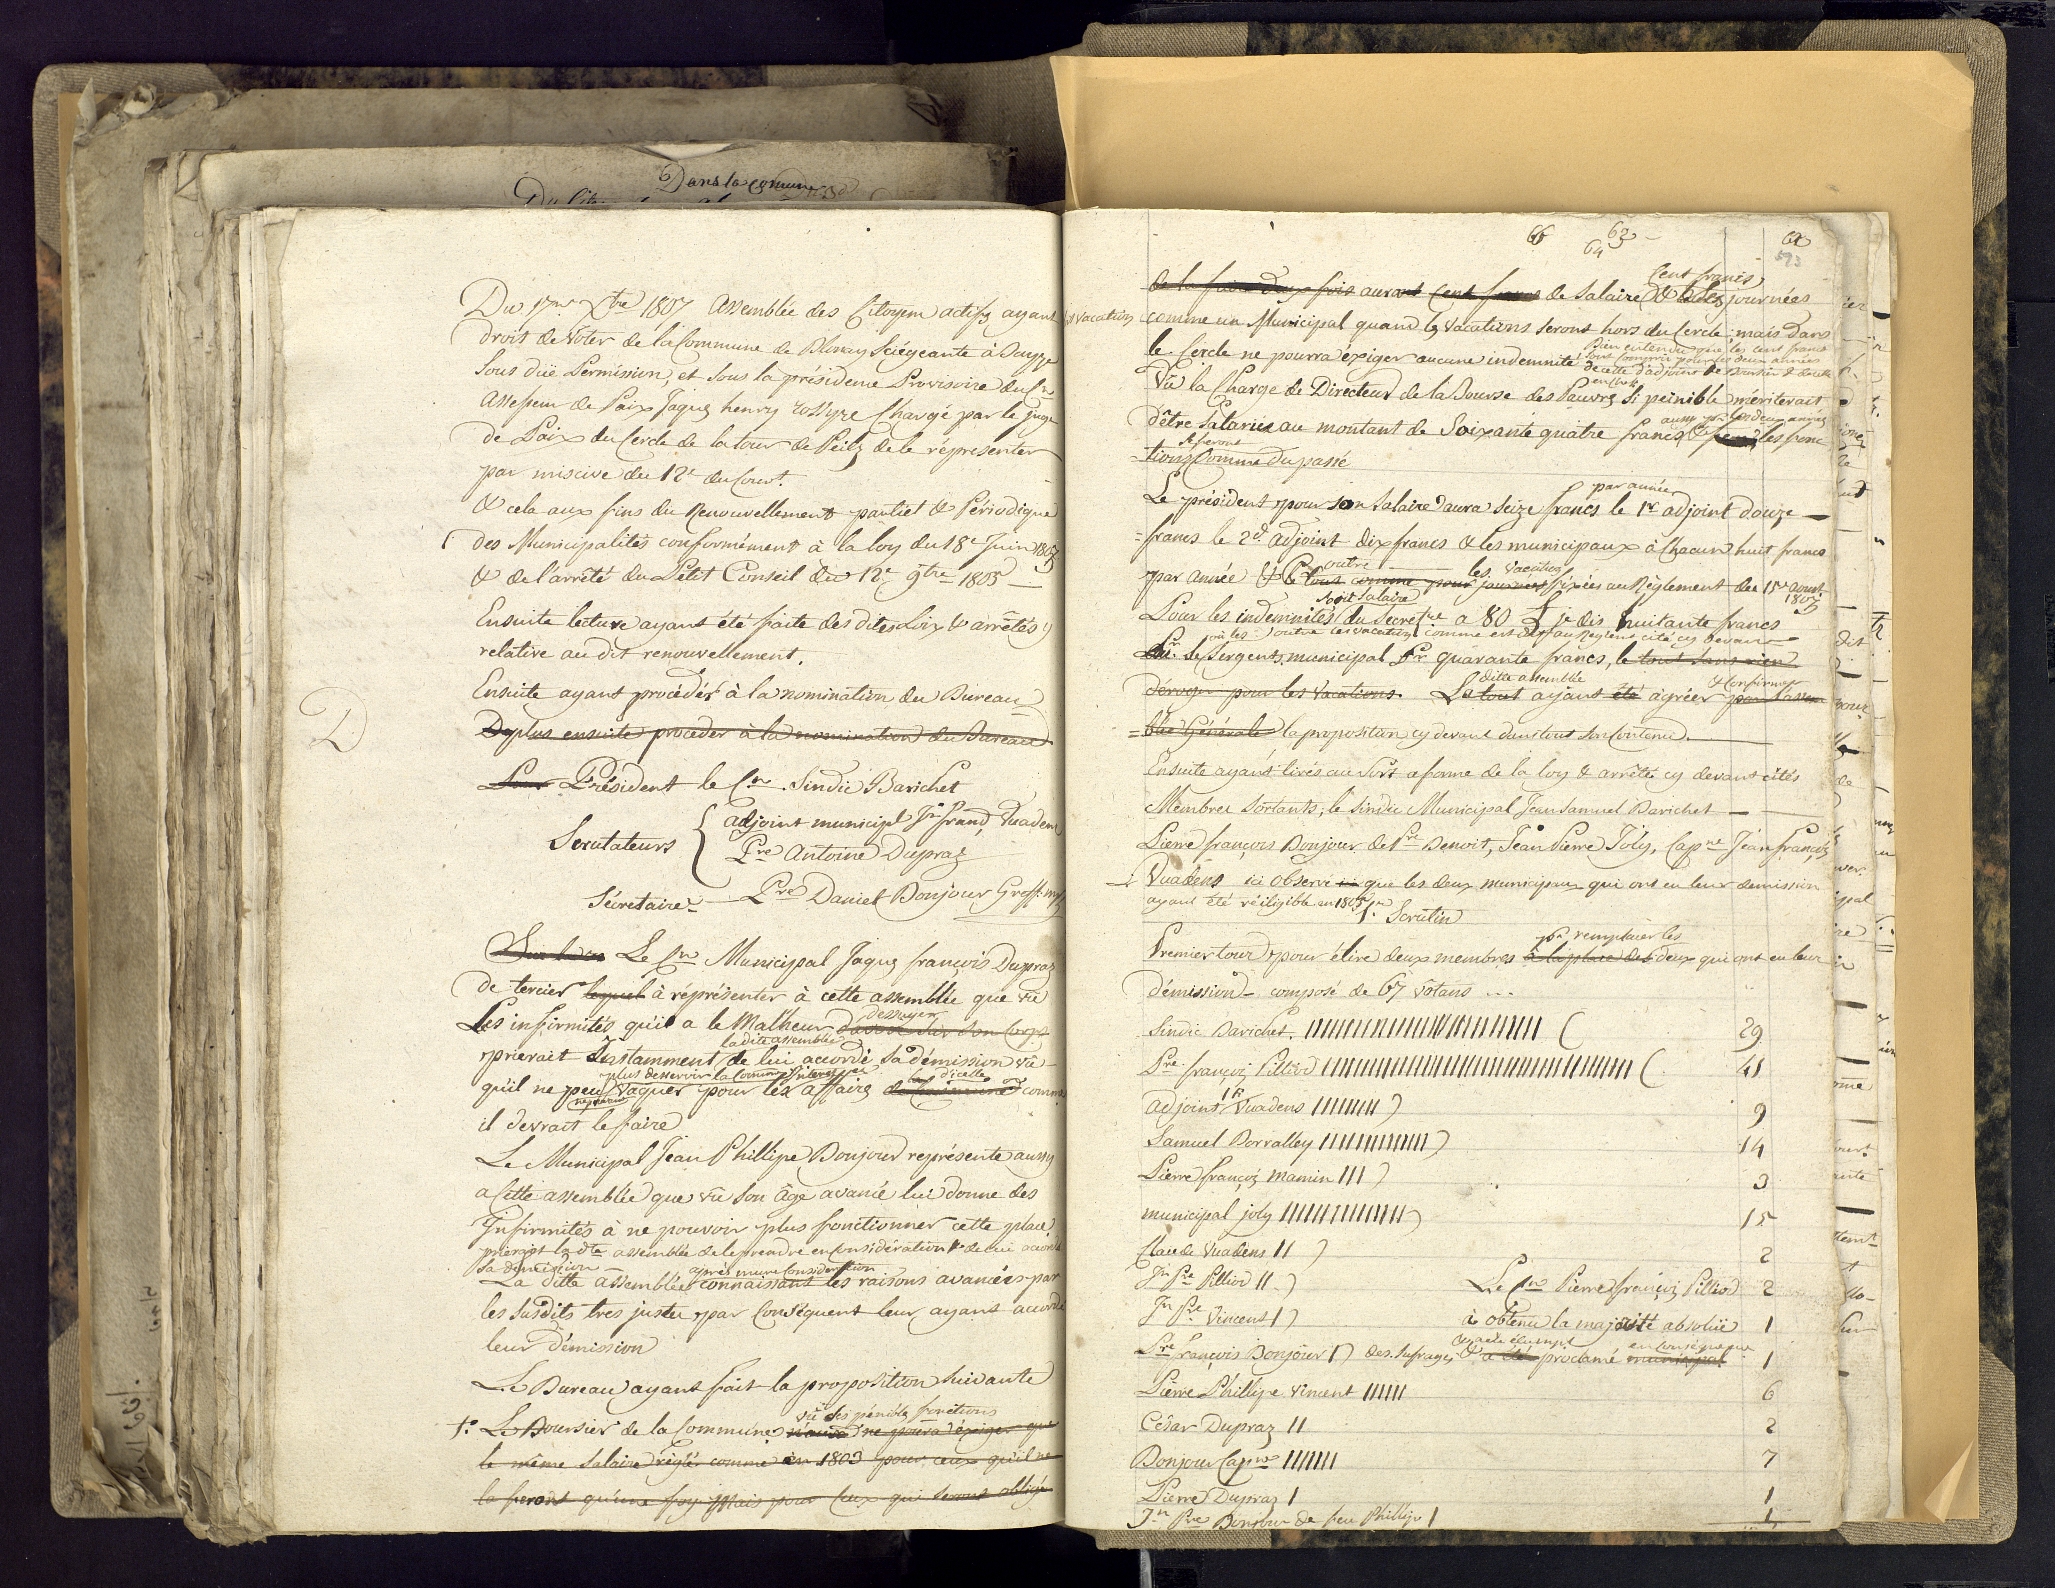 Dans la comune
Du 17me Xbre 1807 Assemblée des Citoyens actifs ayant
droit de Voter de la Commune de Blonay Sciégeante à Sayze
Sous due Permission, et Sous la présidence Provisoire du Cn
Assesseur de Paix Jaques henry Rossyre Chargé par le juge
de Paix du Cercle de la tour de Peilz de le réprésenter
par miscive du 12e du Court.
& cela aux fins du Renouvellement partiel & Périodique
des Municipalités conformément à la loy du 18e Juin 1803
& de l'arrêté du Petit Conseil du 12e 9bre 1805
Ensuite lecture ayant été faite des dites Loix & arrêtés
relative au dit renouvellement.
Ensuite ayant procéder à la nomination du Bureau
Deplus ensuite procéder à la nomination du Bureau
Président le Cn Sindic Barichet
adjoint municipl Jn frand, Vuadens
Scrutateurs
Pre Antoine Dupraz
Sécretaire Pre Daniel Bonjour Greff. mpl
Le Cn Municipal Jaques françois Dupraz
de tercier lequel à réprésenter à cette assemblée que vû
dessuyer
Les infirmités qu'il a le Malheur d'avoir sur son Corps
la dite assemblée
prierait Instamment de lui accordé sa démission vû
plus desservir la Commune
d'icelle
qu'il ne peu vaquer pour les affaires de la Commune comme
il devrait le faire
Le Municipal Jean Phillipe Bonjour représente aussy
a Cette assemblée que vû Son âge avancé lui donne des
Infirmités à ne pouvoir plus fonctionner cette place
prieroit la dte assemblée de le prendre en Considération & de lui accordé
sa démission
après mure Considération
La ditte assemblée connaissant les raisons avancées par
les susdits tres justes par Conséquent leur ayant accordé
leur démission
Le Bureau ayant fait la proposition Suivante
vû ses pénible fonctions
1o Le Boursier de la Commune n'aura ne poura éxiger que
le même Salaire réglé comme en 1803 pour ceux qu'il ne
la feront qu'une foy Mais pour Ceux qui Seront obligé
66 64 62
593
Cent francs
de la faire deux fois auront Cent francs de Salaire & les journées
& vacation
comme un Municipal quand les Vacations Seront hors du Cercle; mais dans
Bien entendu que les cent francs
le Cercle ne pourra éxiger aucune indemnité
Sont Compris pour ses deux années
Vû la Charge de Directeur de la Bourse des Pauvres Si peinible mériterait
aussy pr les deux années
d'être Salariée au montant de Soixante quatre francs & les fonc
se feront
=tions Comme du passé
par année
Le président pour Son Salaire aura Seize francs le 1r adjoint douze
=francs le 2d adjoint dix francs & les municipaux à Chacun huit francs
outre les vacation
par année & Ce tout comme pour journées fixées au Règlement du 15e aoust
1807
soit Salaire
Pour les indemnités du Secretre a 80 £ je dis huitante francs
outre les vacation comme est dit au Reglemt cité cy devant
le Sergent municipal Pr quarante francs, le tout sans rien
ditte assemblée
& Confirmer
déroger pour les Vacations. Le tout ayant été agréer par l'assem
=blée Générale la proposition cy devant dans tout Son Contenu.
Ensuite ayant tirés au Sort a forme de la loy & arrêtés cy devant cités
Membres Sortants; le Sindic Municipal Jean Samuel Barichet
Pierre françois Bonjour de Pre Benoit, Jean Pierre Joly, Capne Jean françois
Vuadens ici Observé que les deux municipaux qui ont eu leur démission
ayant été rééligible en 1805
1r Scrutin
pr remplacer les
Premier tour pour élire deux membres à la place des deux qui ont eu leur
démission composé de 67 Votans ...
Sindic Barichet. 29
Pre françois Pilliod 41
adjoint Vuadens 9
Samuel Borralley 14
Pierre françois Mamin 3
municipal joly 15
Claude Vuadens 2
Jn Pre Pilliod 2
Le Cn Pierre françois Pilliod
Jn Pre Vincent 1
à obtenu la majorité absolüe
en conséquence
Pre François Bonjour 1
des Sufrages & a été proclamé municipal
Pierre Phillipe Vincent 6
César Dupraz 2
Bonjour Capne 7
Pierre Dupraz 1
Jn Pre Bonjour de feu Phillipe 1